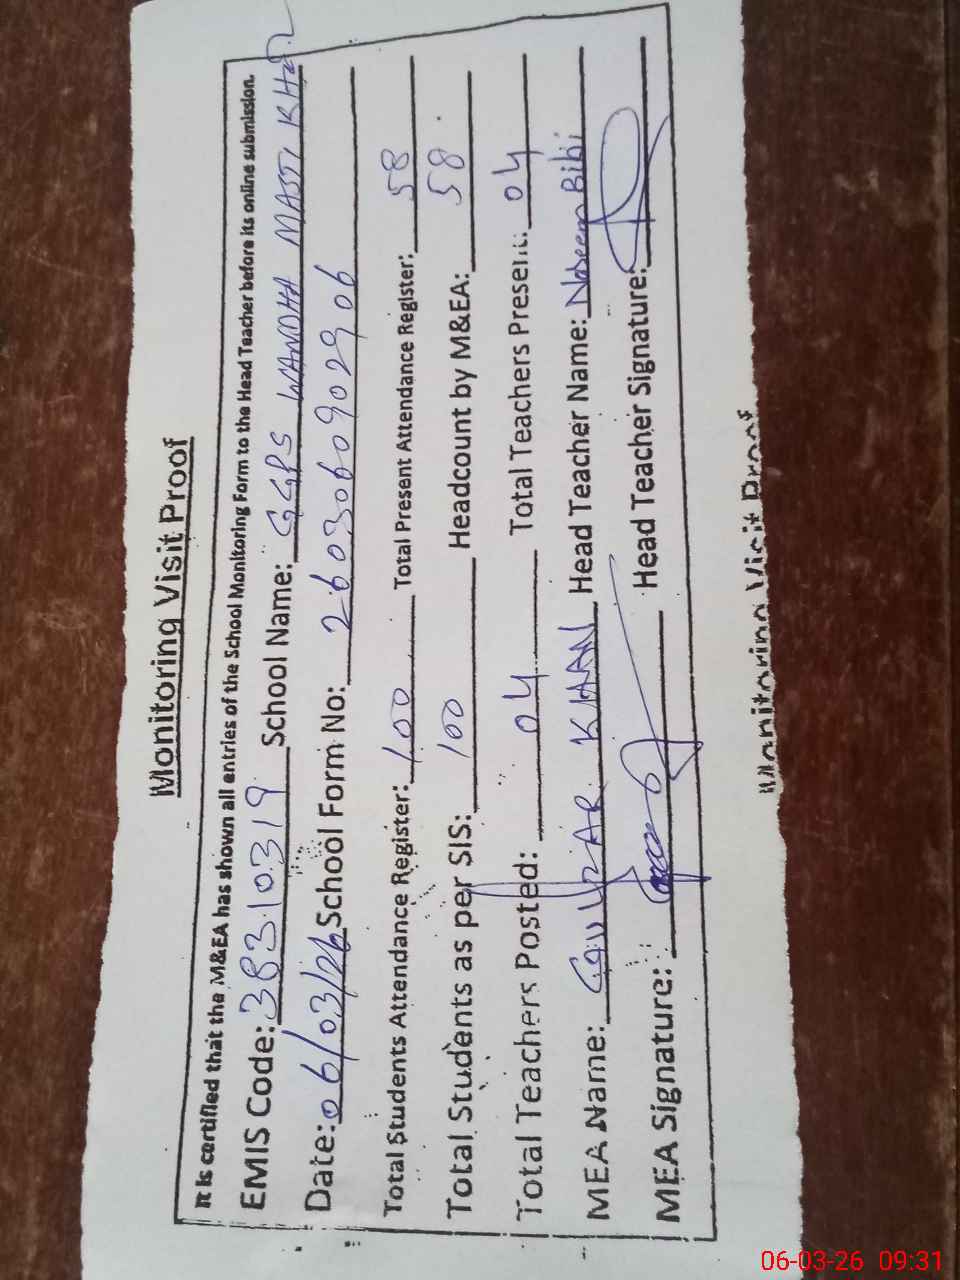 Monitoring Visit Proof
It is certified that the M&EA has shown all entries of the School Monitoring Form to the Head Teacher before its online submission.
EMIS Code: 38310319 School Name: GGPS WANDHA MASTI KHEL
Date: 06/03/26 School Form No: 2603060902906
Total Students Attendance Register: 100 Total Present Attendance Register: 58
Total Students as per SIS: 100 Headcount by M&EA: 58
Total Teachers Posted: 04 Total Teachers Present: 04
MEA Name: GULZAR KHAN Head Teacher Name: Naseem Bibi
MEA Signature: Head Teacher Signature:
Monitoring Visit Proof
06-03-26 09:31